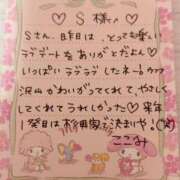 ♡ S 様♡
Sさん、昨日は、とっても楽しい
ラブデートをありがとだよ♡
いっぱいラブラブしたネ!ウフフ
沢山かわいがってくれて、やさしく
してくれてうれしかった♡ 来年
1発目は不倫用家で決まりや。(笑)
ここみ